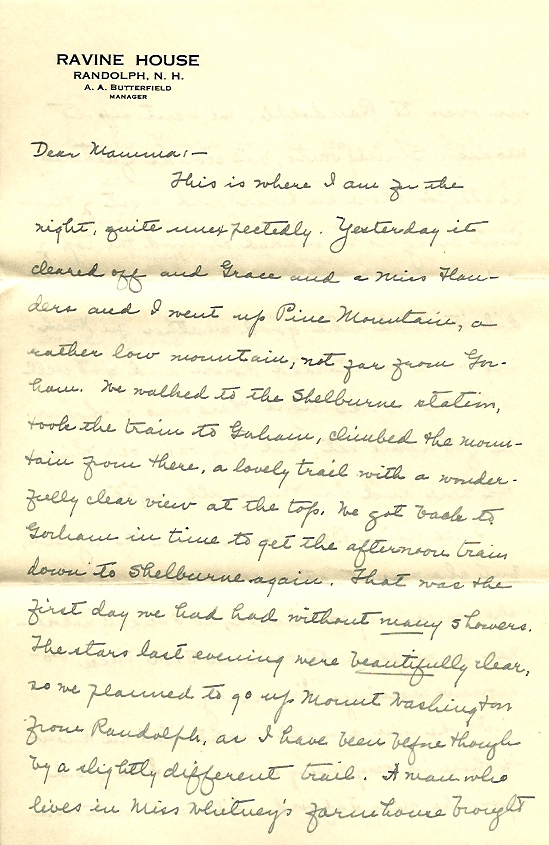 RAVINE HOUSE
RANDOLPH, N. H.
A. A. BUTTERFIELD
MANAGER
Dear Mamma:-
This is where I am for the
night, quite unexpectedly. Yesterday it
cleared off and Grace and a Miss Flan-
ders and I went up Pine Mountain, a
rather low mountain, not far from Gor-
ham. We walked to the Shelburne station,
took the train to Gorham, climbed the moun-
tain from there, a lovely trail with a wonder-
fully clear view at the top. We got back to
Gorham in time to get the afternoon train
down to Shelburne again. That was the
first day we had had without many showers.
The stars last evening were beautifully clear,
so we planned to go up Mount Washington
from Randolph, as I have been before though
by a slightly different trail. A man who
lives in Miss Whitney's farmhouse brought